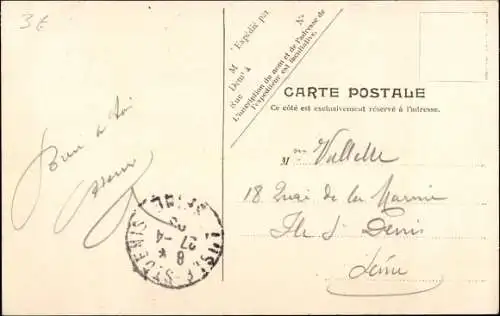 3€
"Expédié par
M
Demt à
Rue N°
L'inscription du nom et de l'adresse de
l'expéditeur est facultative.
CARTE POSTALE
Ce côté est exclusivement réservé à l'adresse.
Bien à toi
M
18 Quai de la Marine
Ile St Denis
Seine
L'ILE-ST-DENIS
8 *
27-4
SEINE